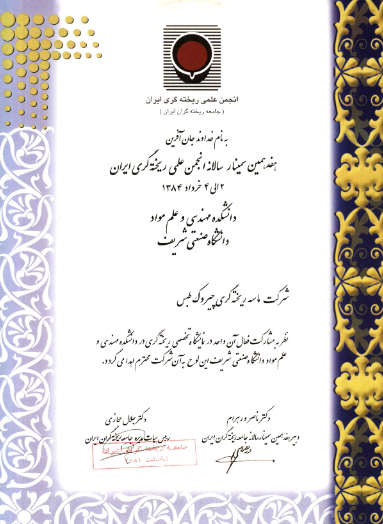 انجمن علمی ریخته گری ایران
( جامعه ریخته گران ایران )
به نام خداوند جان آفرین
هفدهمین سمینار سالانه انجمن علمی ریخته گری ایران
۲ الی ۴ خرداد ۱۳۸۴
دانشکده مهندسی و علم مواد
دانشگاه صنعتی شریف
شرکت ماسه ریخته گری چیروک طبس
نظر به مشارکت فعال آن واحد در نمایشگاه تخصصی ریخته گری در دانشکده مهندسی و
علم مواد دانشگاه صنعتی شریف این لوح به آن شرکت محترم اهدا می گردد.
دکتر ناصر ورهرام
دبیر هفدهمین سمینار سالانه جامعه ریخته گران ایران
دکتر جلال حجازی
رئیس هیات مدیره جامعه ریخته گران ایران
جامعه ریخته گران ایران